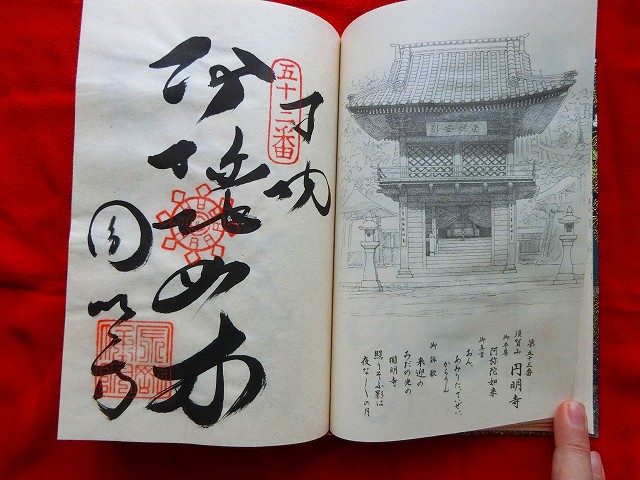 五十三番
奉納
阿弥陀如来
圓明寺
第五十三番
須賀山 円明寺
御本尊
阿弥陀如来
御真言
おん、
あみりた、ていぜい
からうん
御詠歌
来迎の
みだの光の
圓明寺
照りそふ影は
夜な〳〵の月